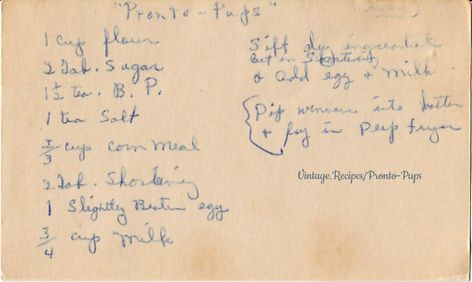 "Pronto-Pups"
1 cup flour
2 Tab. Sugar
1 1/2 tea. B. P.
1 tea Salt
2/3 cup corn meal
2 Tab. Shortening
1 Slightly Beaten egg
3/4 cup milk
Sift dry ingredients
cut in Shortening
& add egg & milk
Dip weiners into batter
& fry in Deep fryer
Vintage.Recipes/Pronto-Pups